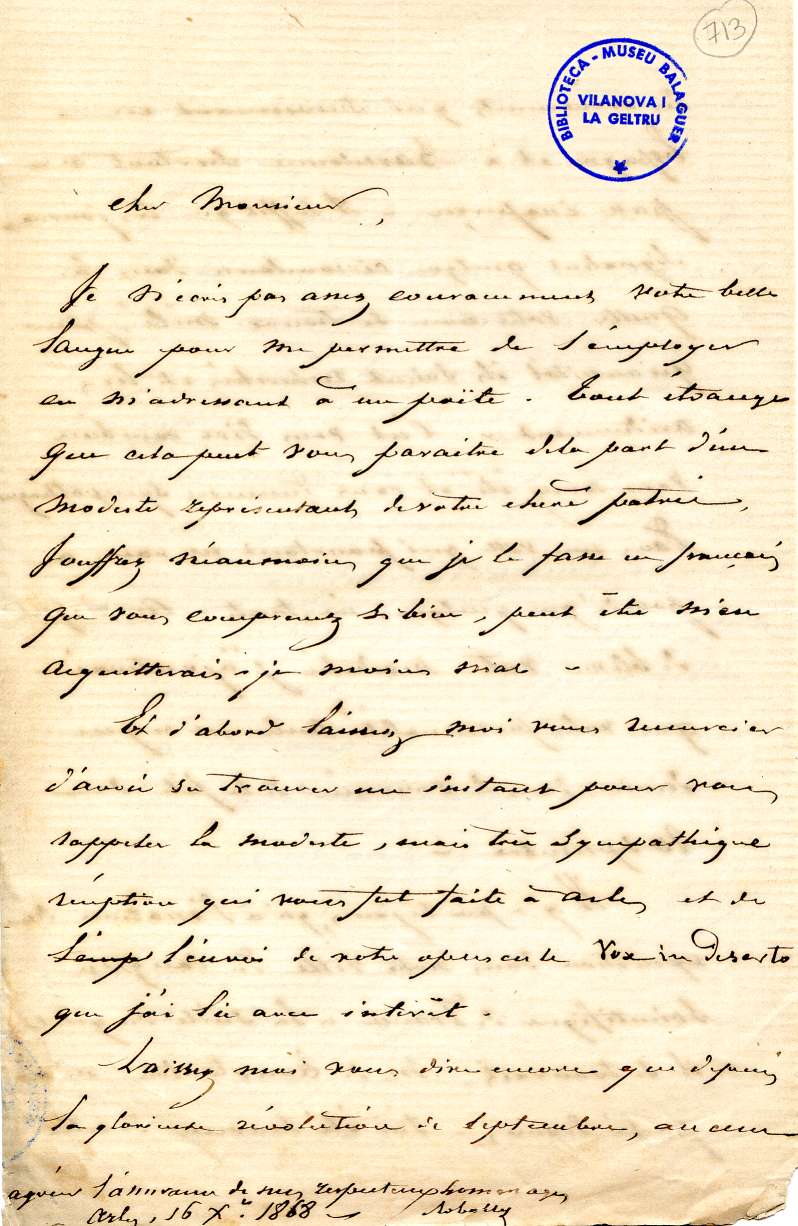 713
BIBLIOTECA - MUSEU BALAGUER
VILANOVA I
LA GELTRU
Cher Monsieur,
Je n'écris pas assez couramment votre belle
langue pour me permettre de l'employer
en m'adressant à un poëte. Tout étrange
que cela peut vous paraitre de la part d'un
modeste représentant de votre chère patrie,
souffrez néanmoins que je le fasse en français
que vous comprenez si bien, peut être m'en
acquitterais-je moins mal.
Et d'abord laissez moi vous remercier
d'avoir su trouver un instant pour vous
rappeler la modeste, mais très sympathique
réception qui vous fut faite à Arles et de
l'envoi de votre opuscule Vox in Deserto
que j'ai lu avec intérêt.
Laissez moi vous dire encore que depuis
la glorieuse révolution de Septembre, aucun
agréer l'assurance de mes respectueux hommages
Arles, 16 Xre 1868